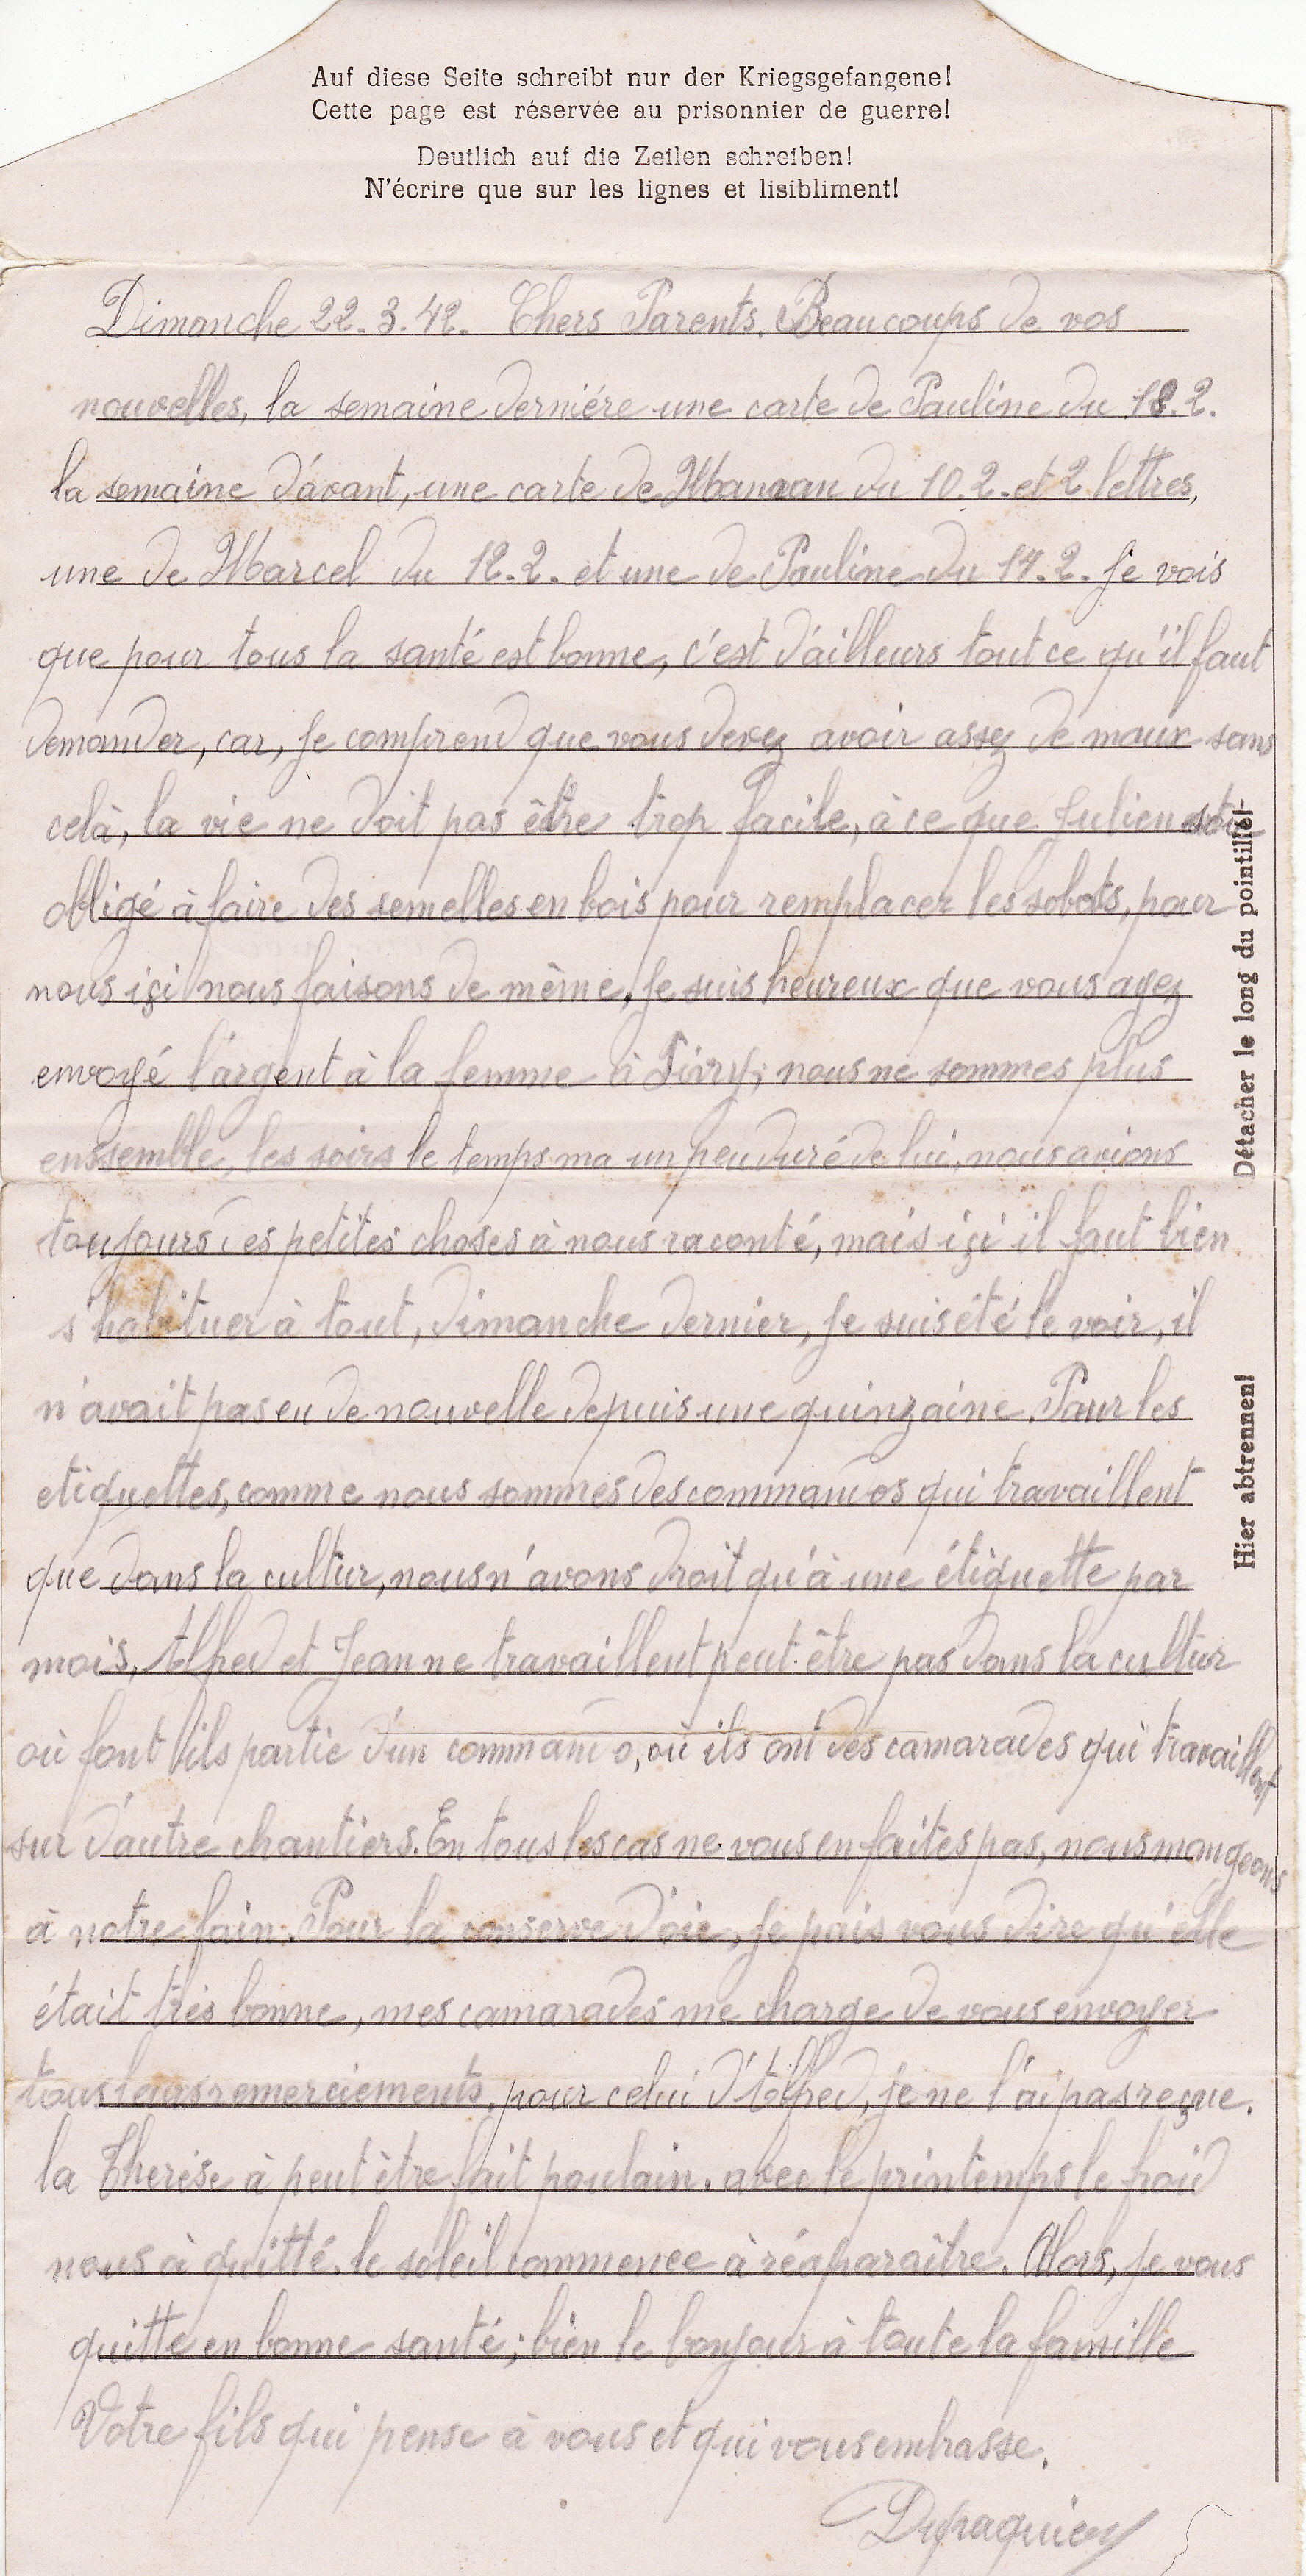 Auf diese Seite schreibt nur der Kriegsgefangene!
Cette page est réservée au prisonnier de guerre!
Deutlich auf die Zeilen schreiben!
N'écrire que sur les lignes et lisibliment!
Dimanche 22.3.42. Chers Parents. Beaucoups de vos
nouvelles, la semaine derniére une carte de Pauline du 18.2.
la semaine d'avant, une carte de Maman du 10.2. et 2 lettres,
une de Marcel du 12.2. et une de Pauline du 14.2. Je vois
que pour tous la santé est bonne, c'est d'ailleurs tout ce qu'il faut
demander, car, je comprend que vous devez avoir assez de maux sans
celà, la vie ne doit pas être trop facile, à ce que Julien
obligé à faire des semelles en bois pour remplacer les sobots, pour
nous içi nous faisons de même. Je suis heureux que vous ayez
envoyé l'argent à la femme à Livry; nous ne sommes plus
enssemble, les soirs le temps ma un peu duré de lui, nous avions
toujours des petites choses à nous raconté, mais içi il faut bien
s'habituer à tout, dimanche dernier, je suis été le voir, il
n'avait pas eu de nouvelle depuis une quinzaine. Pour les
etiquettes, comme nous sommes des commandos qui travaillent
que dans la cultur, nous n'avons droit qu'à une étiquette par
mois, Alfred et Jeanne travaillent peut-être pas dans la cultur
où font ils partie d'un commando, où ils ont des camarades qui travaillent
sur d'autre chantiers. En tous les cas ne vous en faites pas, nous mangeons
à notre fain. Pour la conserve d'oie, je puis vous dire qu'elle
était très bonne, mes camarades me charge de vous envoyer
tous leurs remerciements. pour celui d'Alfred, je ne l'ai pas reçue.
la Therése à peut être fait poulain. avec le printemps le froid
nous à quitté. le soleil commence à réaparaître. Alors, je vous
quitte en bonne santé; bien le bonjour à toute la famille
Votre fils qui pense à vous et qui vous embrasse.
Détacher le long du pointillé!
Hier abtrennen!